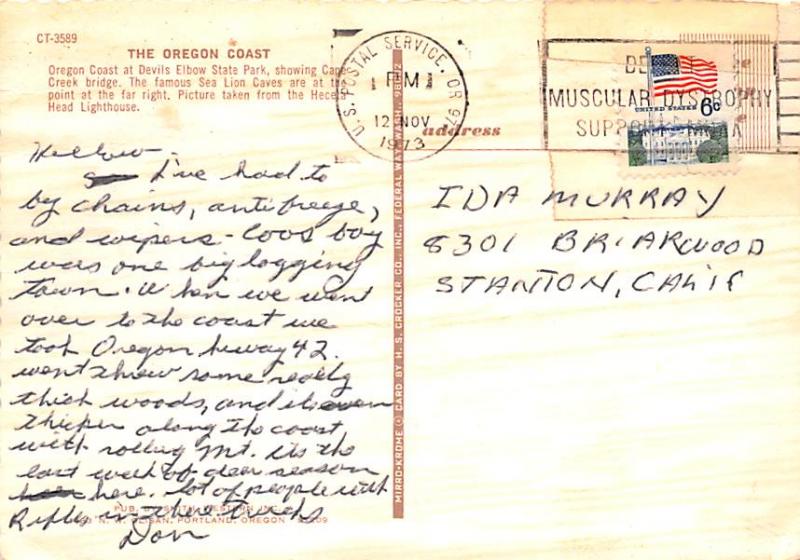 CT-3589
THE OREGON COAST
Oregon Coast at Devils Elbow State Park, showing Cape
Creek bridge. The famous Sea Lion Caves are at the
point at the far right. Picture taken from the Heceta
Head Lighthouse.
U.S. POSTAL SERVICE, OR 97
PM
12 NOV
1973
MUSCULAR DYSTROPHY
SUPPORT
UNITED STATES 6c
address
Hellow -
I've had to
by chains, antifreeze,
and wipers - Coos bay
was one big logging
town. When we went
over to the coast we
took Oregon hiway 42.
went threw some really
thick woods, and its even
thicker along the coast
with rolling Mt. its the
last week of deer season
here. lot of people with
Rifles in there trucks
Don
IDA MURRAY
8301 BRIARWOOD
STANTON, CALIF
MIRRO-KROME © CARD BY H. S. CROCKER CO., INC., FEDERAL WAY, WASH. 98002
PUB. BY SMITH-WESTERN INC.
N. W. GLISAN, PORTLAND, OREGON